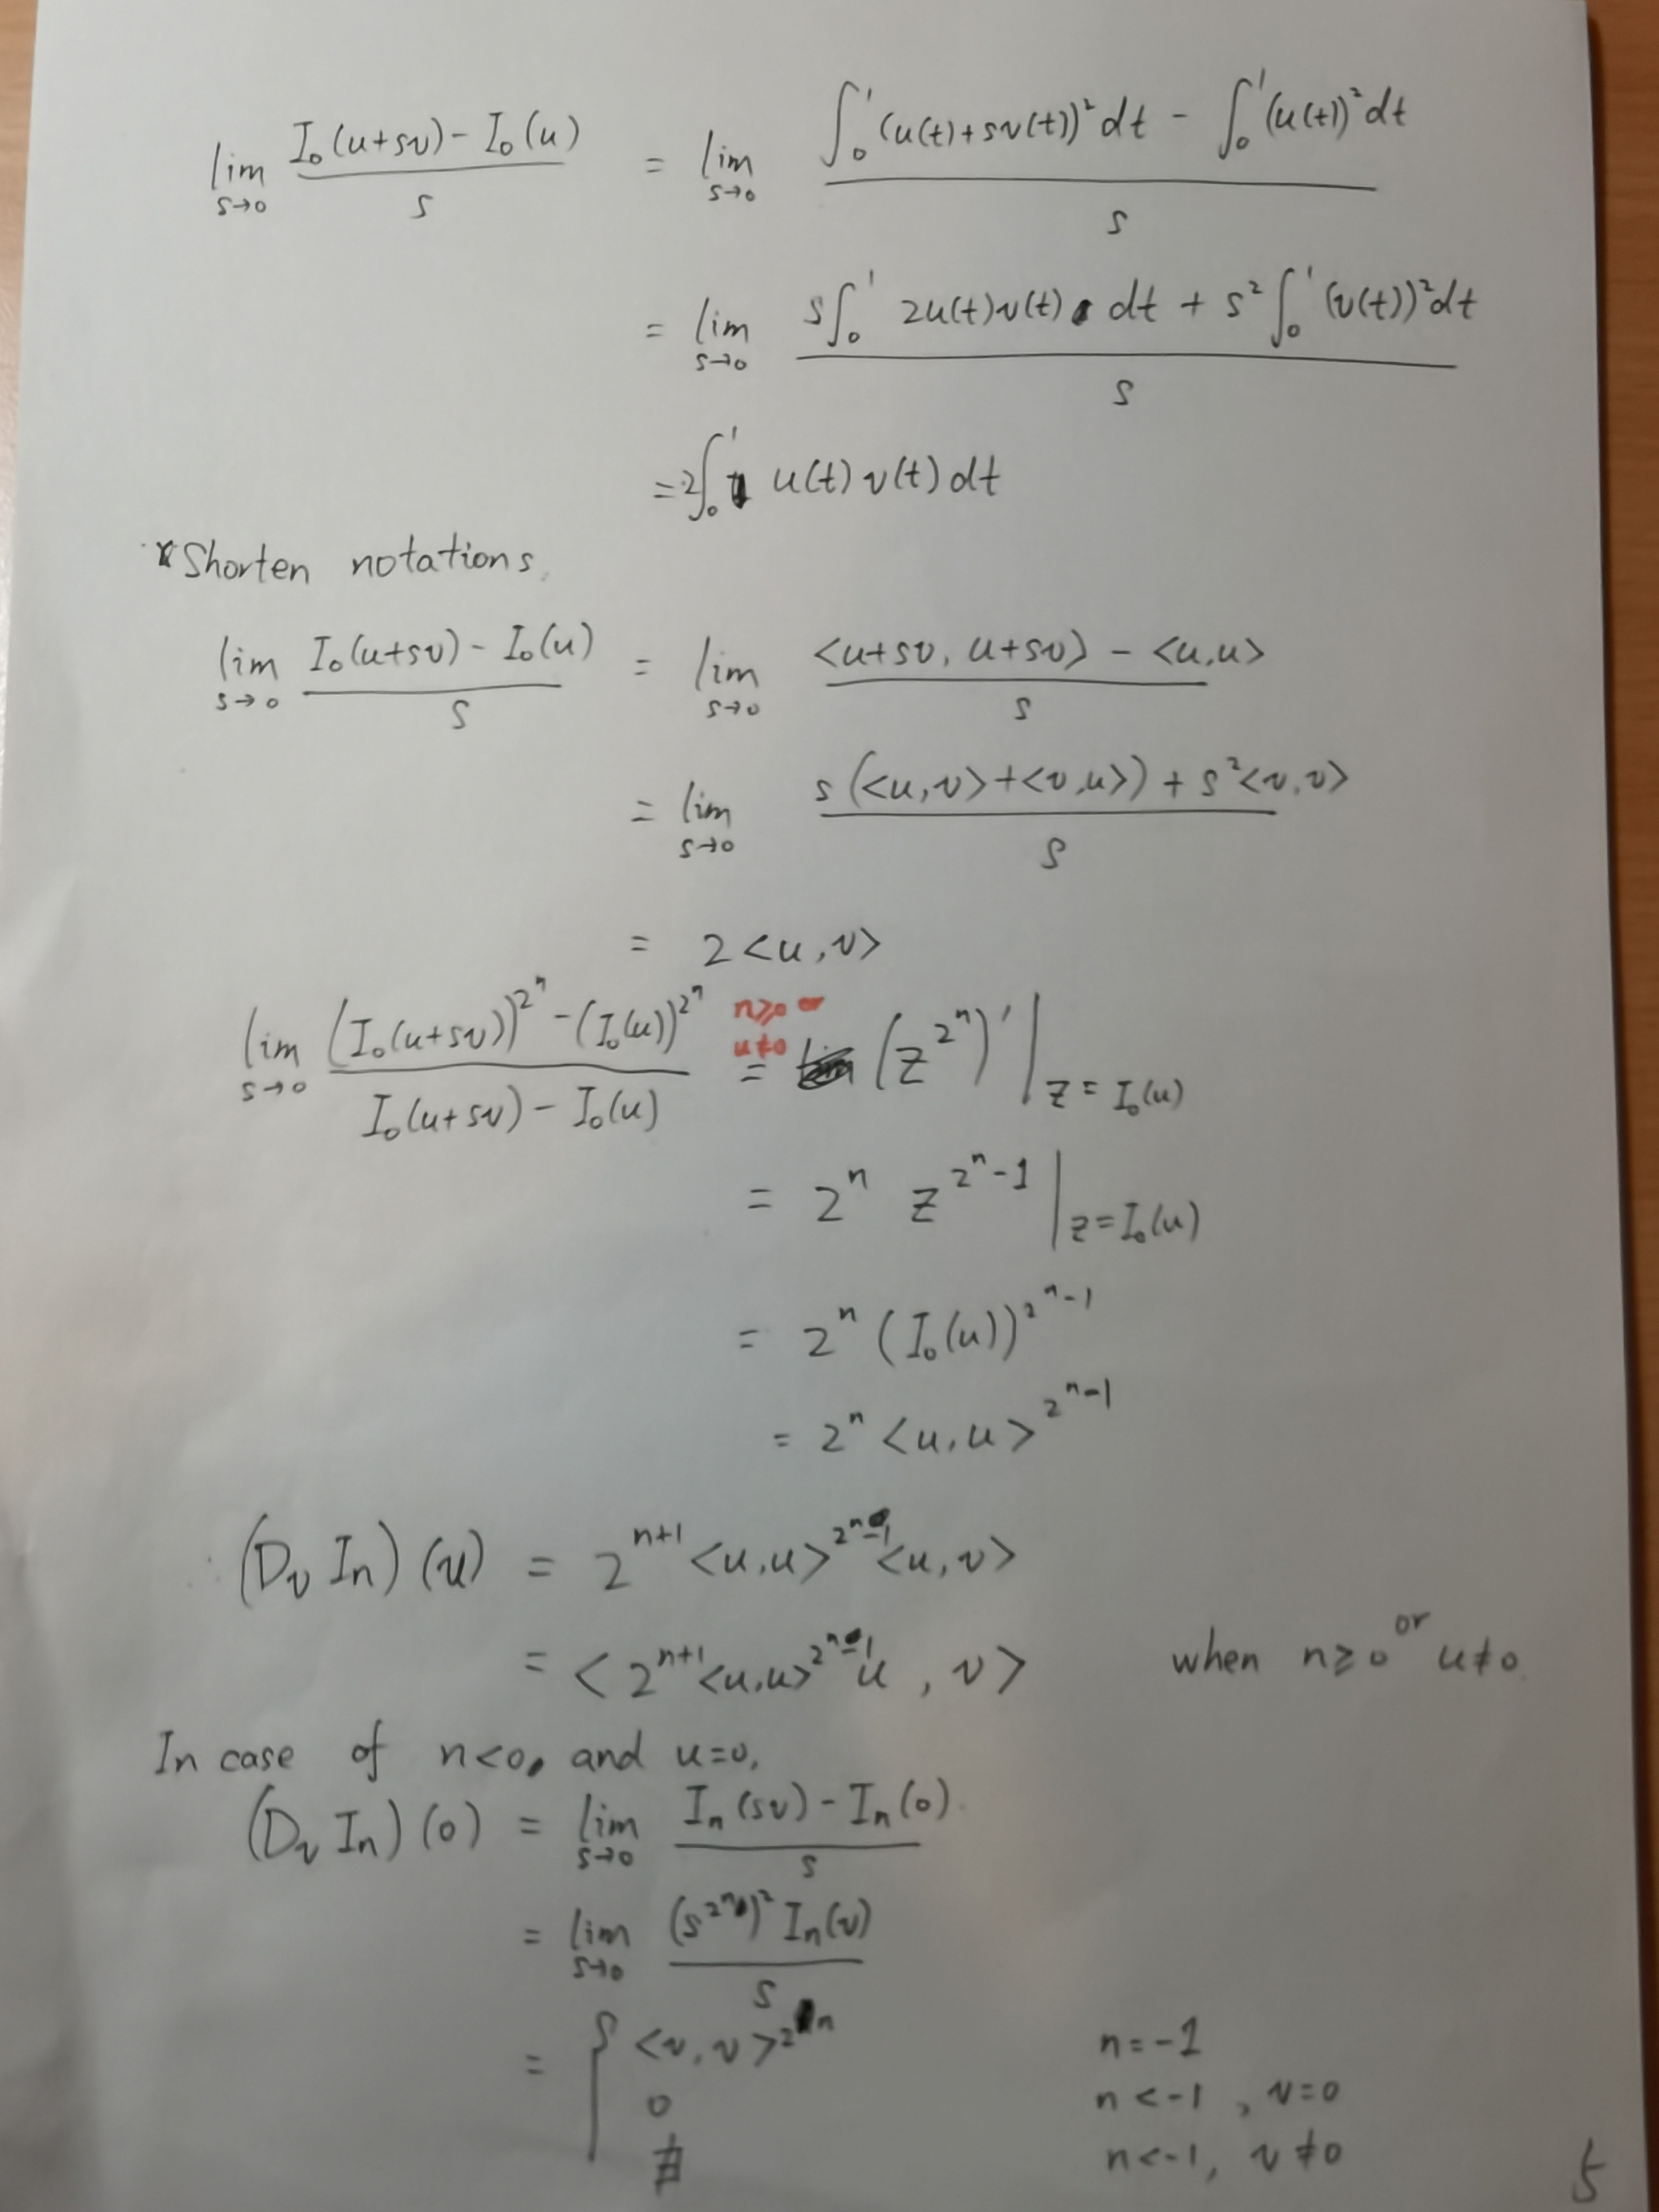 lim_{s→0} (I₀(u+sv) - I₀(u))/s = lim_{s→0} (∫₀¹ (u(t)+sv(t))² dt - ∫₀¹ (u(t))² dt)/s
= lim_{s→0} (s∫₀¹ 2u(t)v(t) dt + s² ∫₀¹ (v(t))² dt)/s
= 2∫₀¹ u(t) v(t) dt
*Shorten notations.
lim_{s→0} (I₀(u+sv) - I₀(u))/s = lim_{s→0} (<u+sv, u+sv> - <u,u>)/s
= lim_{s→0} (s(<u,v>+<v,u>) + s²<v,v>)/s
= 2<u,v>
lim_{s→0} ((I₀(u+sv))^{2^n} - (I₀(u))^{2^n})/(I₀(u+sv) - I₀(u)) = (z^{2^n})' |_{z = I₀(u)}
n≥0 or
u≠0
= 2^n z^{2^n-1} |_{z=I₀(u)}
= 2^n (I₀(u))^{2^n-1}
= 2^n <u,u>^{2^n-1}
(D_v I_n)(u) = 2^{n+1} <u,u>^{2^n-1} <u,v>
= <2^{n+1} <u,u>^{2^n-1} u, v> when n≥0 or u≠0
In case of n<0, and u=0,
(D_v I_n)(0) = lim_{s→0} (I_n(sv) - I_n(0))/s
= lim_{s→0} ((s^{2^n})² I_n(v))/s
= { <v,v>^{2^n} n=-1
0 n<-1, v=0
∄ n<-1, v≠0
5